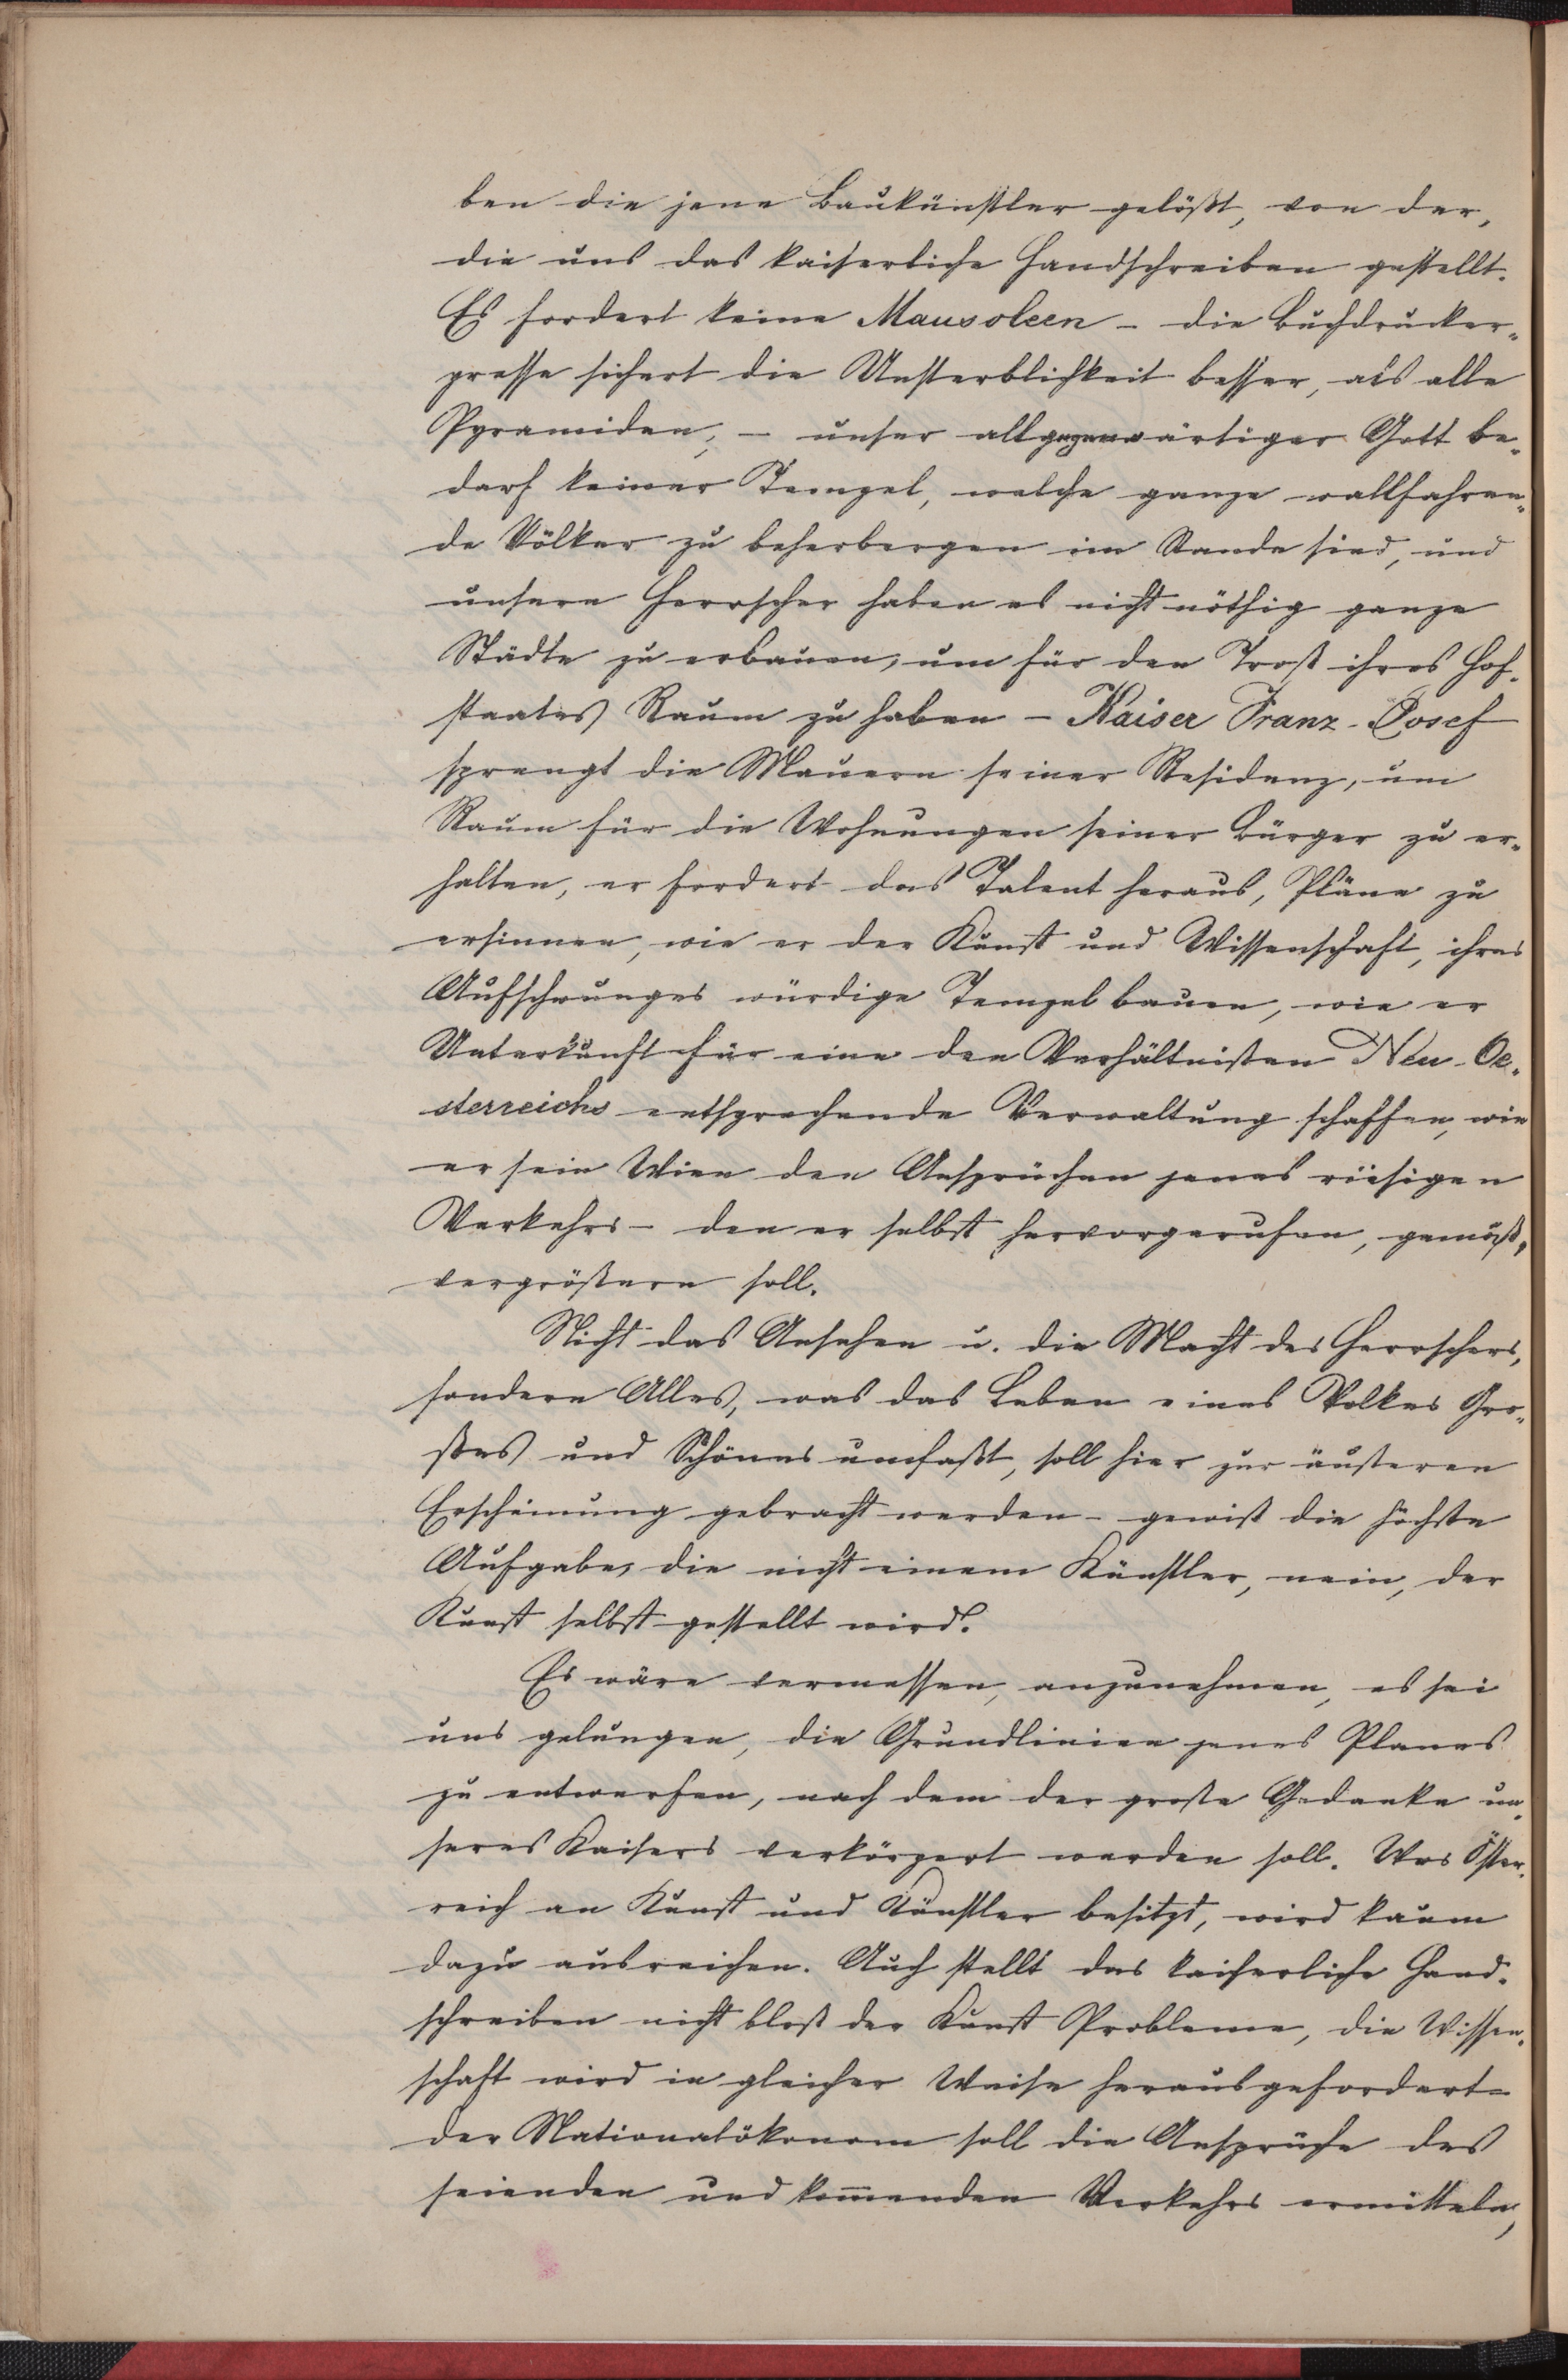 ben die jene Baukünstler gelößt, von der,
die uns das kaiserliche Handschreiben gestellt.
Es fordert keine Mausoleen – die Buchdrucker-
presse sichert die Unsterblichkeit besser, als alle
Pyramiden, – unser allgegenwärtiger Gott be-
darf keiner Tempel, welche ganze wallfahren-
de Völker zu beherbergen im Stande sind, und
unsere Herrscher haben es nicht nöthig ganze
Städte zu erbauen, um für den Troß ihres Hof-
staates Raum zu haben – Kaiser Franz-Josef
sprengt die Mauern seiner Residenz, um
Raum für die Wohnungen seiner Bürger zu er-
halten, er fordert das Talent heraus, Pläne zu
ersinnen, wie er der Kunst und Wissenschaft, ihres
Aufschwunges würdige Tempel bauen, wie er
Unterkunft für eine den Verhältnißen Neu-Oe-
sterreichs entsprechende Verwaltung schaffen, wie
er sein Wien den Ansprüchen jenes riesigen
Verkehrs – den er selbst hervorgerufen, gemäß,
vergrößern soll.
Nicht das Ansehen u. die Macht des Herrschers,
sondern Alles, was das Leben eines Volkes Gro-
ßes und Schönes umfaßt, soll hier zur äußeren
Erscheinung gebracht werden – gewiß die höchste
Aufgabe, die nicht einem Künstler, nein, der
Kunst selbst gestellt wird.
Es wäre vermessen, anzunehmen, es sei
uns gelungen, die Grundlinien jenes Planes
zu entwerfen, nach dem der große Gedanke un-
seres Kaisers verkörpert werden soll. Was Öster-
reich an Kunst und Künstler besitzt, wird kaum
dazu ausreichen. Auch stellt das kaiserliche Hand-
schreiben nicht bloß der Kunst Probleme, die Wissen-
schaft wird in gleicher Weise herausgefordert –
der Nationalökonom soll die Ansprüche des
seienden und kom̄enden Verkehrs ermitteln,